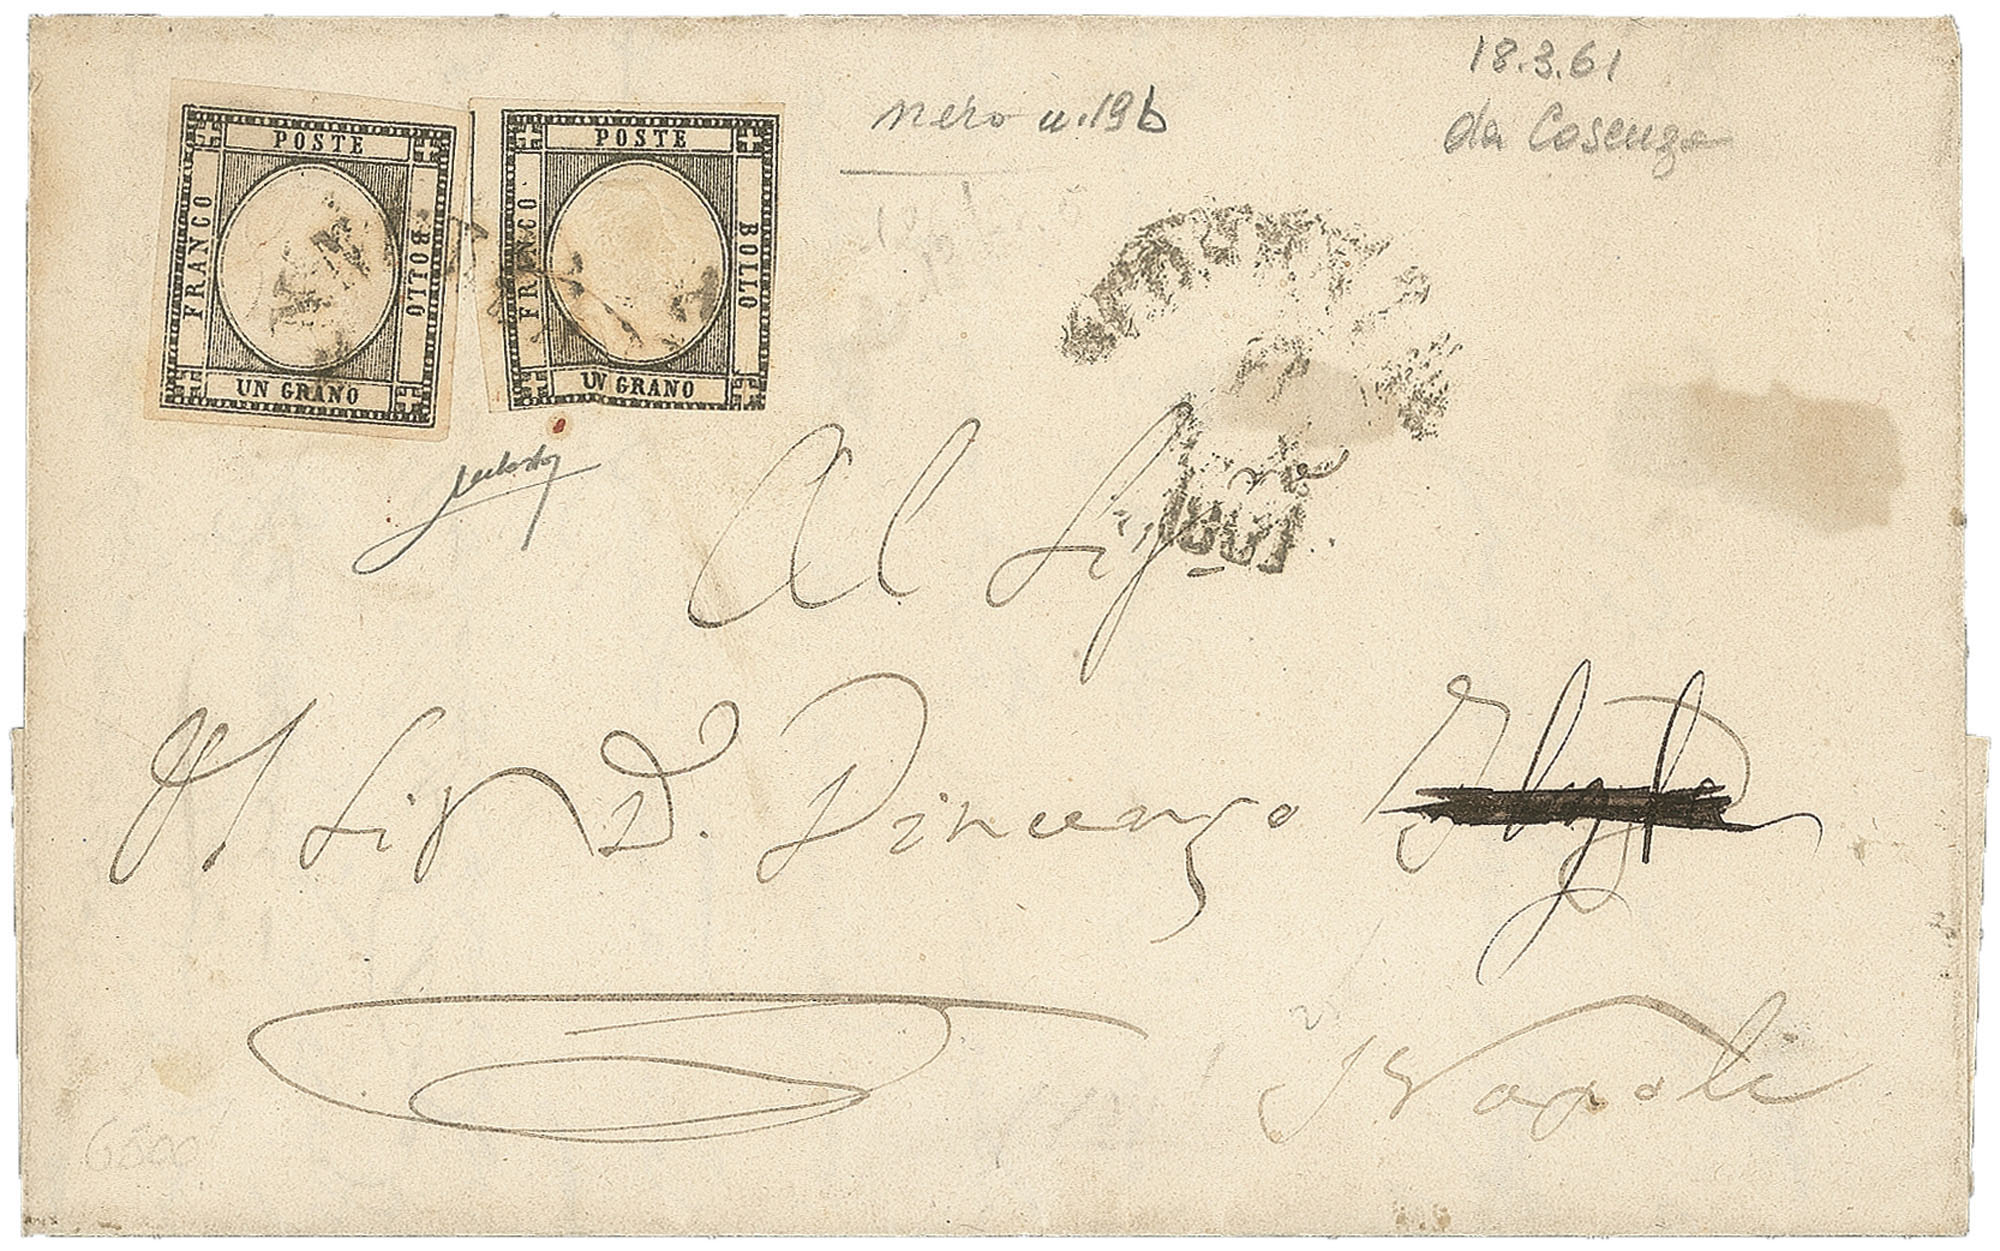 18.3.61
da Cosenza
nero n. 19b
POSTE
FRANCO
BOLLO
UN GRANO
POSTE
FRANCO
BOLLO
UN GRANO
1861
Al Sigre
Al Sigr D. Vincenzo
Napoli
6500